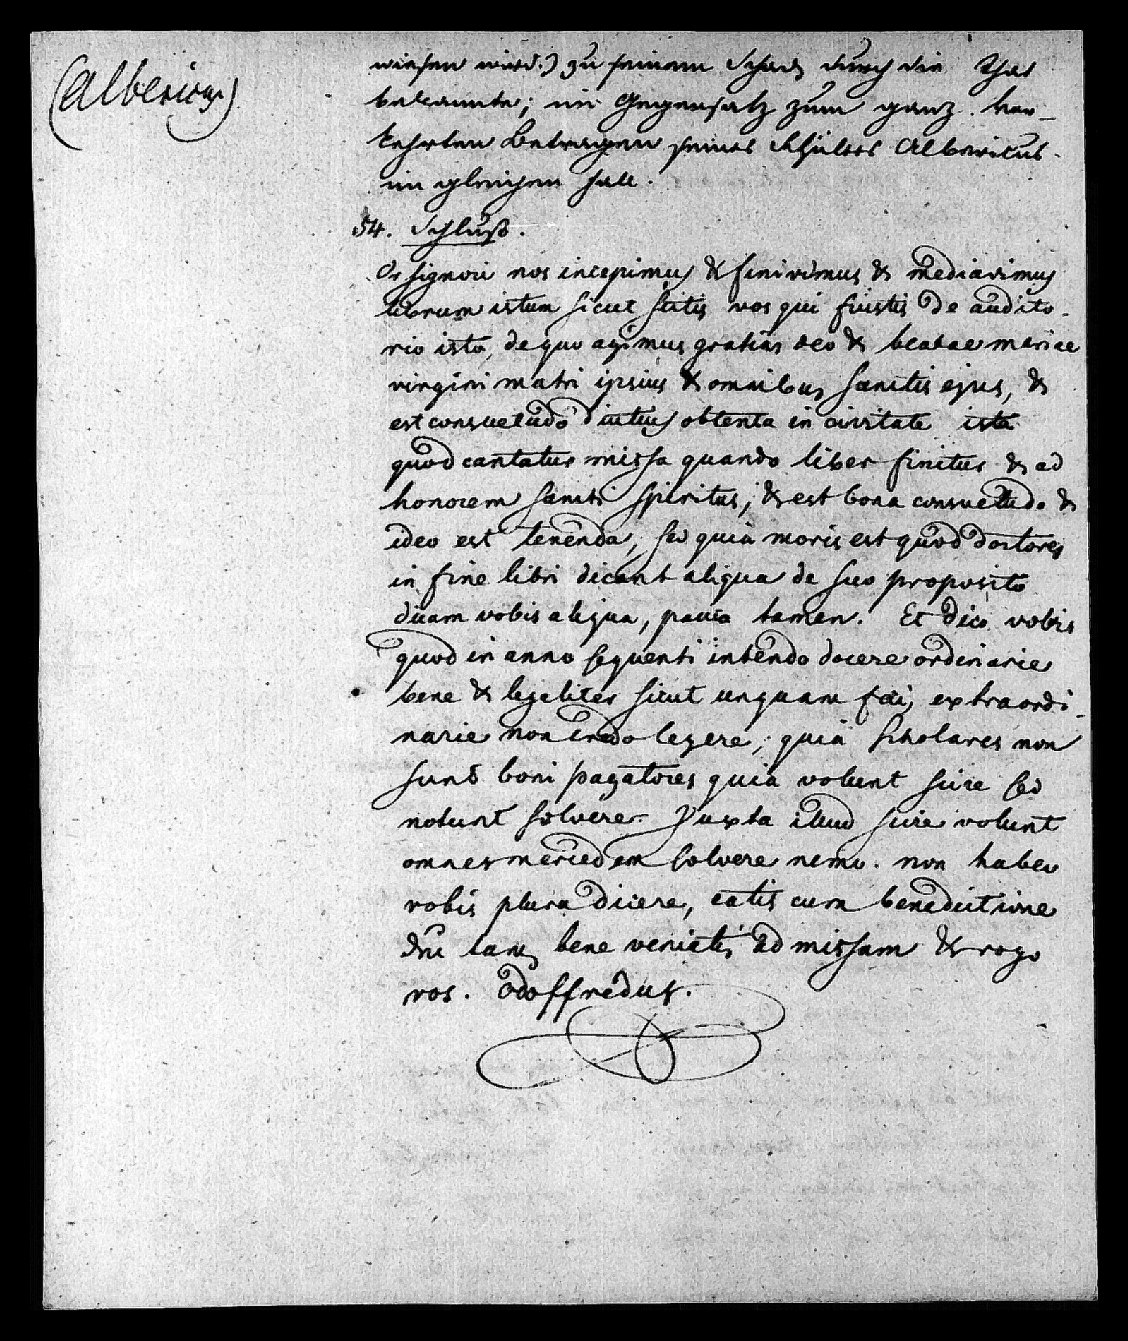 (Albericus)
wiesen wird.) zu seinem Schad. durch die That
bekannte; im Gegensatz zum ganz ver-
kehrten Betragen seines Schülers Albericus
im gleichen Fall.
54. Schluß.
Or signori nos incepimus & finivimus & mediavimus
librum istum sicut scitis vos qui fuistis de audito-
rio isto, de quo agimus gratias deo & beatae mariae
virgini matri ipsius & omnibus sanctis ejus, &
est consuetudo diutius obtenta in civitate ista
quod cantatur missa quando liber finitur & ad
honorem sancti spiritus, & est bona consuetudo &
ideo est tenenda, sed quia moris est quod doctores
in fine libri dicant aliqua de suo proposito
dicam vobis aliqua, pauca tamen. Et dico vobis
quod in anno sequenti intendo docere ordinarie
bene & legaliter sicut unquam feci, extraordi-
narie non credo legere, quia scholares non
sunt boni pagatores quia volunt scire sed
nolunt solvere Juxta illud scire volunt
omnes mercedem solvere nemo. non habeo
vobis plura dicere, eatis cum benedictione
dni tam. bene veniatis ad missam & rogo
vos. Odoffredus.